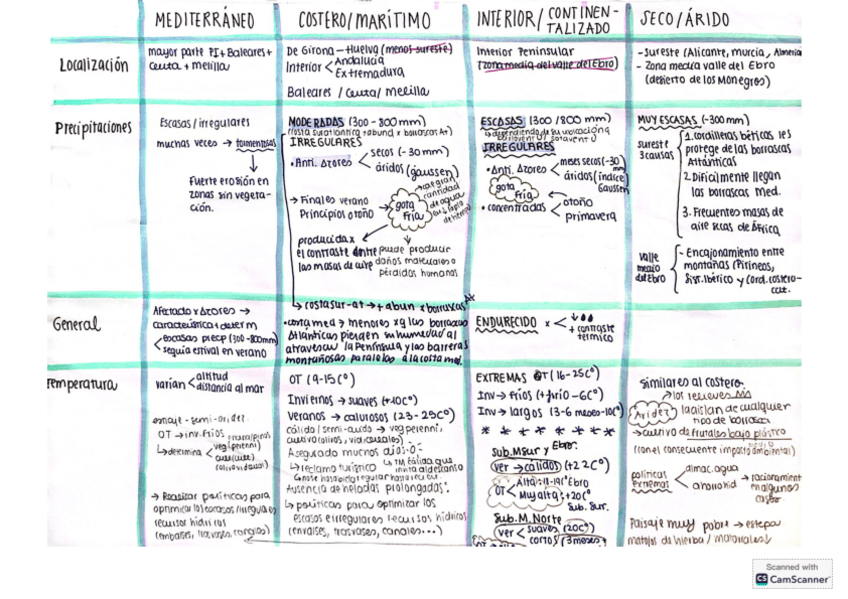 MEDITERRÁNEO
COSTERO/MARÍTIMO
INTERIOR/CONTINEN-
TALIZADO
SECO/ÁRIDO
Localización
mayor parte PI+Baleares+
Ceuta + melilla
De Girona - Huelva (menos sureste)
Interior < Andalucía
Extremadura
Baleares / Ceuta/ melilla
Interior Peninsular
(zona media del valle del Ebro)
- Sureste (Alicante, murcia, Almería
- Zona media valle del Ebro
(desierto de los Monegros)
Precipitaciones
Escasas / irregulares
muchas veces → tormentosas
Fuerte erosión en
zonas sin vegeta-
ción.
MODERADAS (300-800mm)
IRREGULARES
• Anti. Azores < secos (-30mm)
áridos (gaussen)
→ Finales verano
Principios otoño →
gota
Fría
→ gran
cantidad
de agua
producida x
el contraste entre
las masas de aire
puede producir
daños materiales o
pérdidas humanas
→ costa sur-at → + abun x borrascas At
ESCASAS (300/800mm)
→ dependiendo de su ubicación a
barlovento / sotavento
IRREGULARES
• Anti. Azores < meses secos (-30)
mm
áridos (índice
Gaussen
gota
Fría
• concentradas < otoño
primavera
MUY ESCASAS (-300mm)
sureste
3 causas
1. Cordilleras béticas les
protege de las borrascas
Atlánticas
2. Difícilmente llegan
las borrascas med.
3. Frecuentes masas de
aire secas de África
valle
medio
del Ebro
- Encajonamiento entre
montañas (Pirineos,
Sist. Ibérico y Cord. costero-
cat.
General
Afectado x Azores →
característica + determ
< escasas precp (300-800mm)
sequía estival en verano
• costa med → menores xq las borrascas
Atlánticas pierden su humedad al
atravesar la Península y las barreras
montañosas paralelas a la costa med.
ENDURECIDO x <
+ contraste
térmico
Temperatura
varían < altitud
distancia al mar
OT → inv. Fríos
→ determina < veg (perenni)
→ Realizar políticas para
optimizar los escasos/irregulares
recursos hídricos
(embalses, trasvases, canales)
OT (9-15Cº)
Inviernos → suaves (+10Cº)
Veranos → calurosos (23-25Cº)
cálido / semi-árido → veg perenni,
Asegurado muchos días
→ reclamo turístico
→ TM cálida que
invita al descanso
Ausencia de heladas prolongadas.
→ políticas para optimizar los
escasos e irregulares recursos hídricos
(envalses, trasvases, canales...)
EXTREMAS OT (16-25Cº)
Inv → Fríos (+frío -6Cº)
Inv → largos (3-6 meses -10Cº)
Sub.M sur y Ebro.
ver → cálidos (+22Cº)
OT < Alta: Ebro
Muy alta: +20Cº
Sub. Sur.
Sub.M. Norte
ver < suaves (20Cº)
cortos (3 meses)
Similares al costero.
→ los relieves
Aridez
la aislan de cualquier
tipo de borrasca
→ cultivo de frutales bajo plástico
(con el consecuente impacto ambiental)
políticas
extremas < almac. agua
ahorro hid → racionamient
en algunos
casos
Paisaje muy pobre → estepa
matojos de hierba / matorrales↓
Scanned with
CS CamScanner